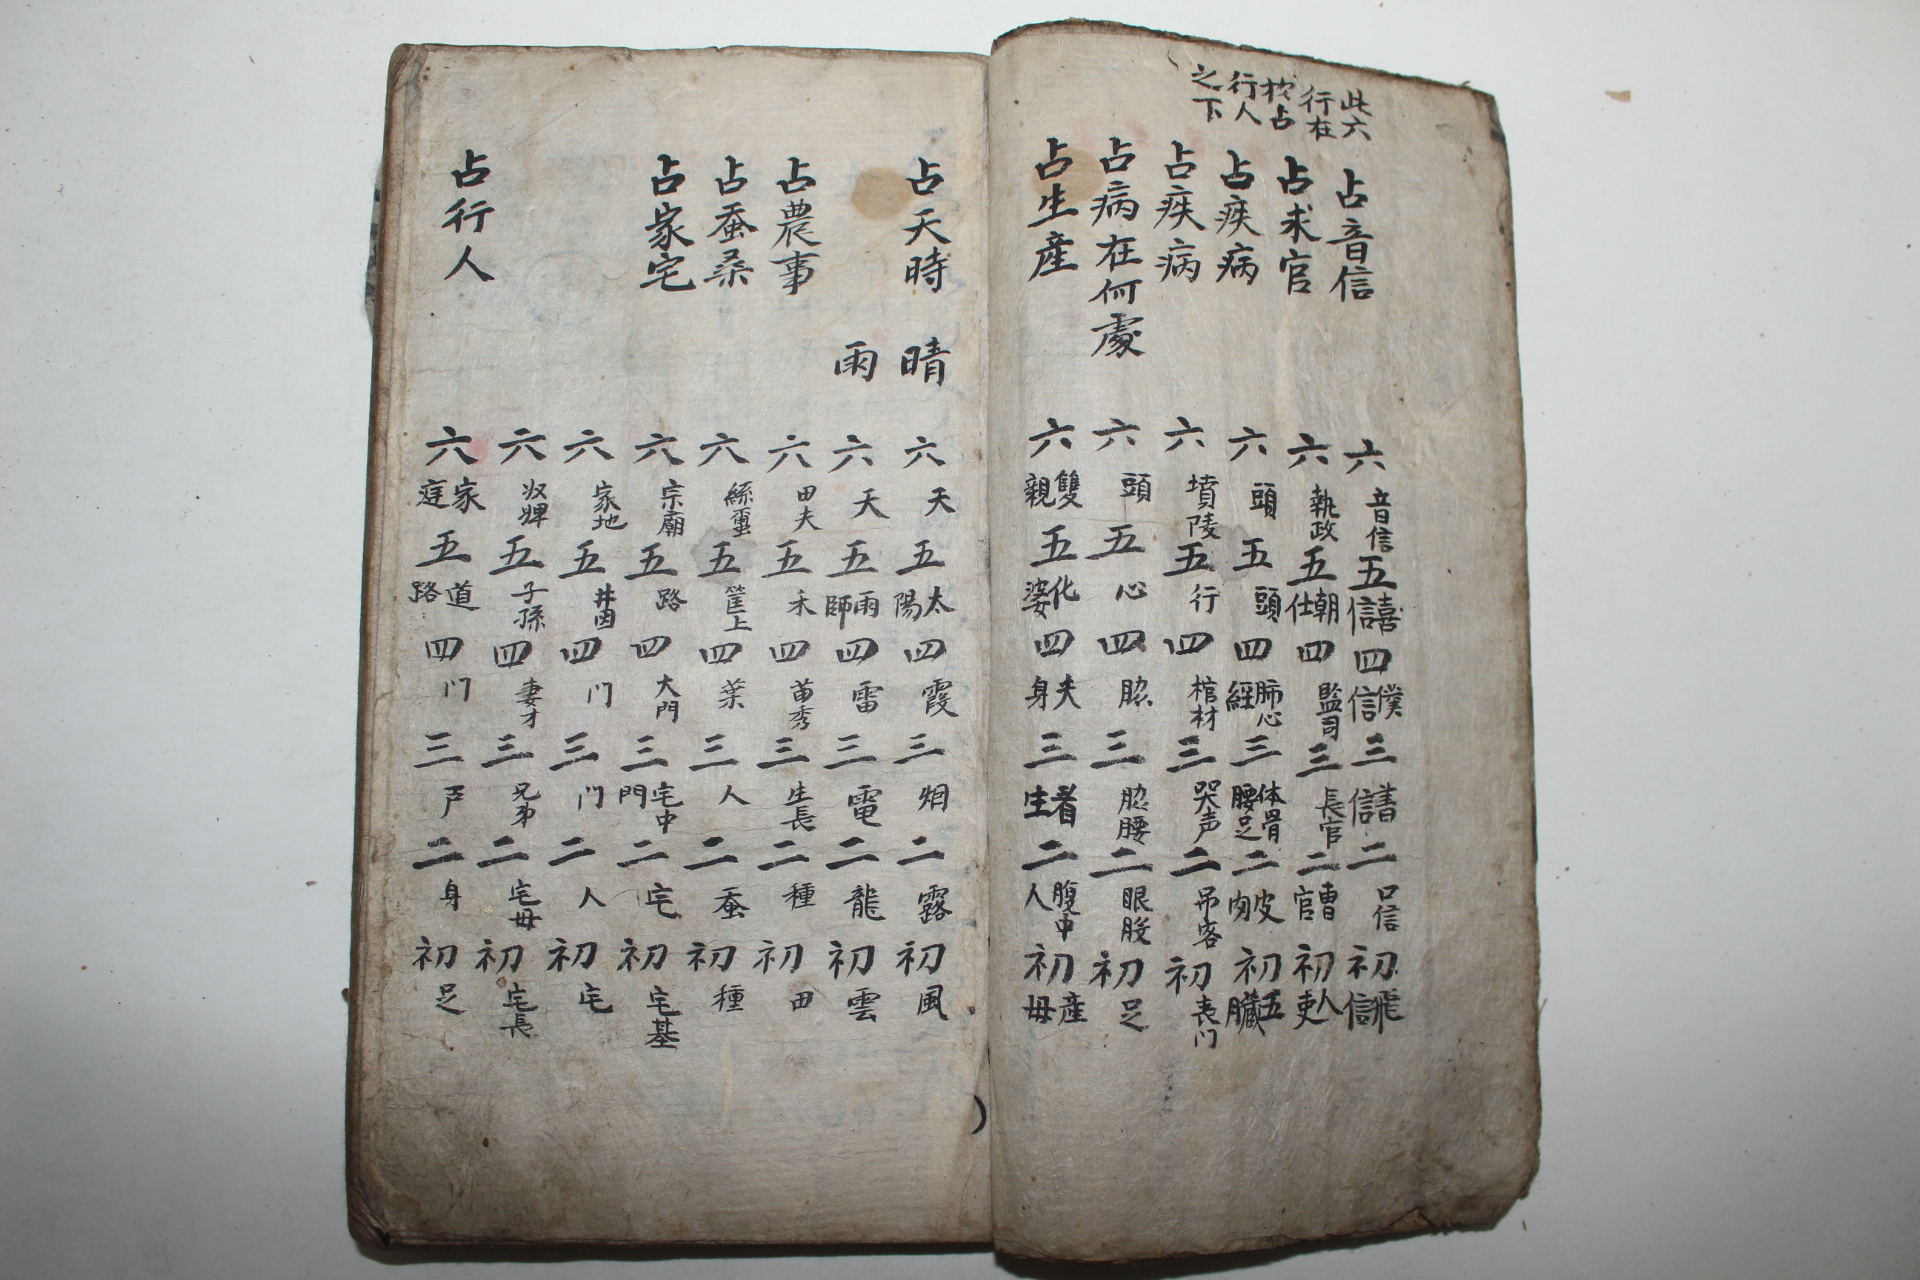 此六
行在
於占
行人
之下
占音信 六 音信 五 喜信 四 僕信 三 書信 二 口信 初 飛信
占求官 六 執政 五 朝仕 四 監司 三 長官 二 曹官 初 人吏
占疾病 六 頭 五 頭 四 肺心經 三 体骨腰足 二 皮肉 初 五臟
占疾病 六 墳陵 五 行 四 棺材 三 哭声 二 吊客 初 喪门
占病在何處 六 頭 五 心 四 脇 三 脇腰 二 眼股 初 足
占生産 六 雙親 五 化婆 四 夫身 三 看生 二 腹中人 初 産母
占天時 晴 六 天 五 太陽 四 霞 三 烟 二 露 初 風
雨 六 天 五 雨師 四 雷 三 電 二 龍 初 雲
占農事 六 田夫 五 禾 四 苗秀 三 生長 二 種 初 田
占蚕桑 六 絲蠒 五 筐上 四 葉 三 人 二 蚕 初 種
占家宅 六 宗廟 五 路 四 大門 三 宅中門 二 宅 初 宅基
六 家地 五 井 四 门 三 门 二 人 初 宅
六 奴婢 五 子孫 四 妻才 三 兄弟 二 宅母 初 宅長
占行人 六 家庭 五 道路 四 门 三 戸 二 身 初 足